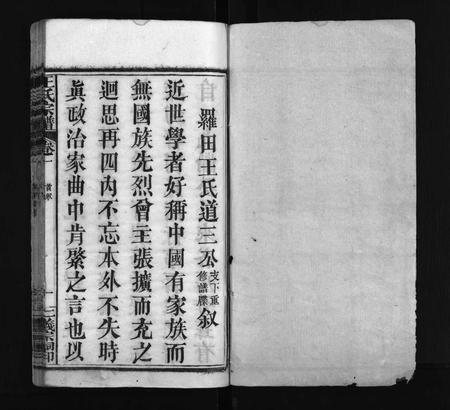 羅田王氏道三公支下重修譜牒叙
近世學者好稱中國有家族而
無國族先烈曾主張擴而充之
迴思再四內不忘本外不失時
眞政治家曲中肯綮之言也以
王氏宗譜 卷一